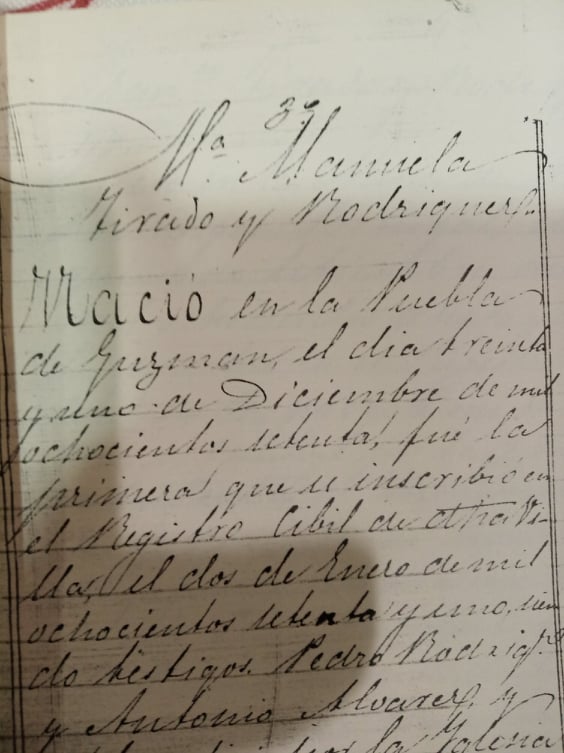 33
Mª Manuela
Tirado y Rodriguez.
Nació en la Puebla
de Guzman, el dia treinta
y uno de Diciembre de mil
ochocientos setenta, fué la
primera que se inscribió en
el Registro Cibil de dha Vi-
lla, el dos de Enero de mil
ochocientos setenta y uno, sien
do testigos Pedro Rodrigz
y Antonio Alvarez, y
por la Iglesia